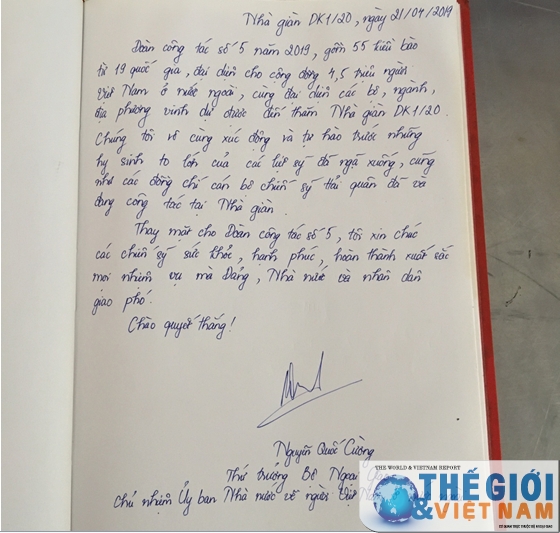 Nhà giàn DK1/20, ngày 21/04/2019
Đoàn công tác số 5 năm 2019, gồm 55 kiều bào
từ 19 quốc gia, đại diện cho cộng đồng 4,5 triệu người
Việt Nam ở nước ngoài, cùng đại diện các bộ, ngành,
địa phương vinh dự được đến thăm Nhà giàn DK1/20.
Chúng tôi vô cùng xúc động và tự hào trước những
hy sinh to lớn của các liệt sỹ đã ngã xuống, cũng
như các đồng chí cán bộ chiến sỹ Hải quân đã và
đang công tác tại Nhà giàn.
Thay mặt cho Đoàn công tác số 5, tôi xin chúc
các chiến sỹ sức khỏe, hạnh phúc, hoàn thành xuất sắc
mọi nhiệm vụ mà Đảng, Nhà nước và nhân dân
giao phó.
Chào quyết thắng!
Nguyễn Quốc Cường
Thứ trưởng Bộ Ngoại
Chủ nhiệm Ủy ban Nhà nước về người Việt
THE WORLD & VIETNAM REPORT
THẾ GIỚI
& VIỆT NAM
CƠ QUAN TRỰC THUỘC BỘ NGOẠI GIAO